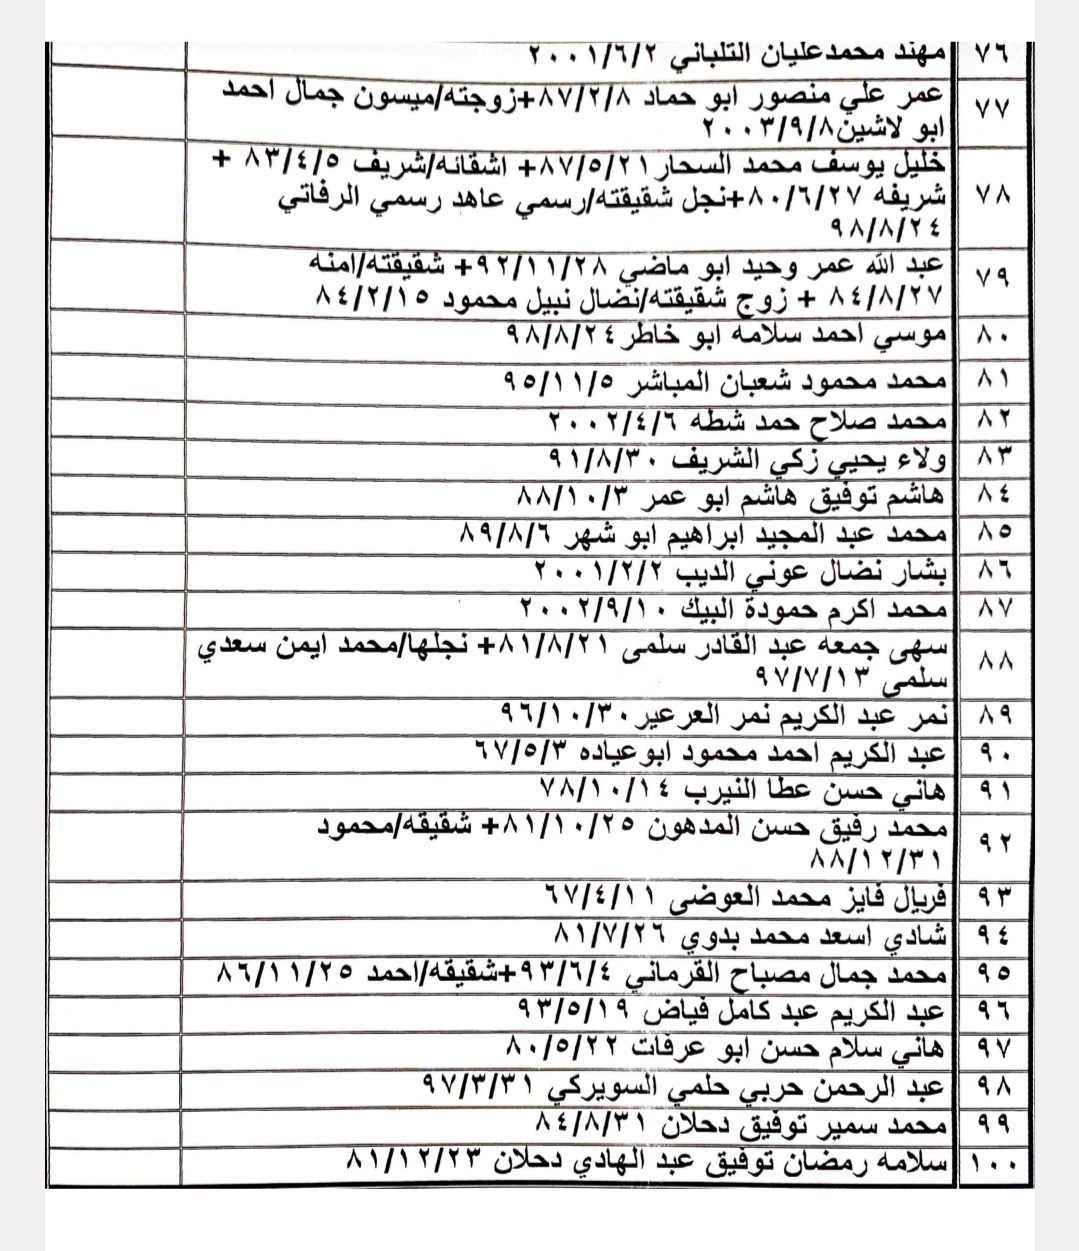 ٧٦ مهند محمدعليان التلباني ٢٠٠١/٦/٢
٧٧ عمر علي منصور ابو حماد ٨٧/٢/٨+زوجته/ميسون جمال احمد
ابو لاشين٢٠٠٣/٩/٨
٧٨ خليل يوسف محمد السحار ٨٧/٥/٢١+ اشقائه/شريف ٨٣/٤/٥ +
شريفه ٨٠/٦/٢٧+نجل شقيقته/رسمي عاهد رسمي الرفاتي
٩٨/٨/٢٤
٧٩ عبد الله عمر وحيد ابو ماضي ٩٢/١١/٢٨+ شقيقته/امنه
٨٤/٨/٢٧ + زوج شقيقته/نضال نبيل محمود ٨٤/٢/١٥
٨٠ موسي احمد سلامه ابو خاطر ٩٨/٨/٢٤
٨١ محمد محمود شعبان المباشر ٩٥/١١/٥
٨٢ محمد صلاح حمد شطه ٢٠٠٢/٤/٦
٨٣ ولاء يحيي زكي الشريف ٩١/٨/٣٠
٨٤ هاشم توفيق هاشم ابو عمر ٨٨/١٠/٣
٨٥ محمد عبد المجيد ابراهيم ابو شهر ٨٩/٨/٦
٨٦ بشار نضال عوني الديب ٢٠٠١/٢/٢
٨٧ محمد اكرم حمودة البيك ٢٠٠٢/٩/١٠
٨٨ سهى جمعه عبد القادر سلمى ٨١/٨/٢١+ نجلها/محمد ايمن سعدي
سلمى ٩٧/٧/١٣
٨٩ نمر عبد الكريم نمر العرعير ٩٦/١٠/٣٠
٩٠ عبد الكريم احمد محمود ابوعياده ٦٧/٥/٣
٩١ هاني حسن عطا النيرب ٧٨/١٠/١٤
٩٢ محمد رفيق حسن المدهون ٨١/١٠/٢٥+ شقيقه/محمود
٨٨/١٢/٣١
٩٣ فريال فايز محمد العوضى ٦٧/٤/١١
٩٤ شادي اسعد محمد بدوي ٨١/٧/٢٦
٩٥ محمد جمال مصباح القرماني ٩٣/٦/٤+شقيقه/احمد ٨٦/١١/٢٥
٩٦ عبد الكريم عبد كامل فياض ٩٣/٥/١٩
٩٧ هاني سلام حسن ابو عرفات ٨٠/٥/٢٢
٩٨ عبد الرحمن حربي حلمي السويركي ٩٧/٣/٣١
٩٩ محمد سمير توفيق دحلان ٨٤/٨/٣١
١٠٠ سلامه رمضان توفيق عبد الهادي دحلان ٨١/١٢/٢٣